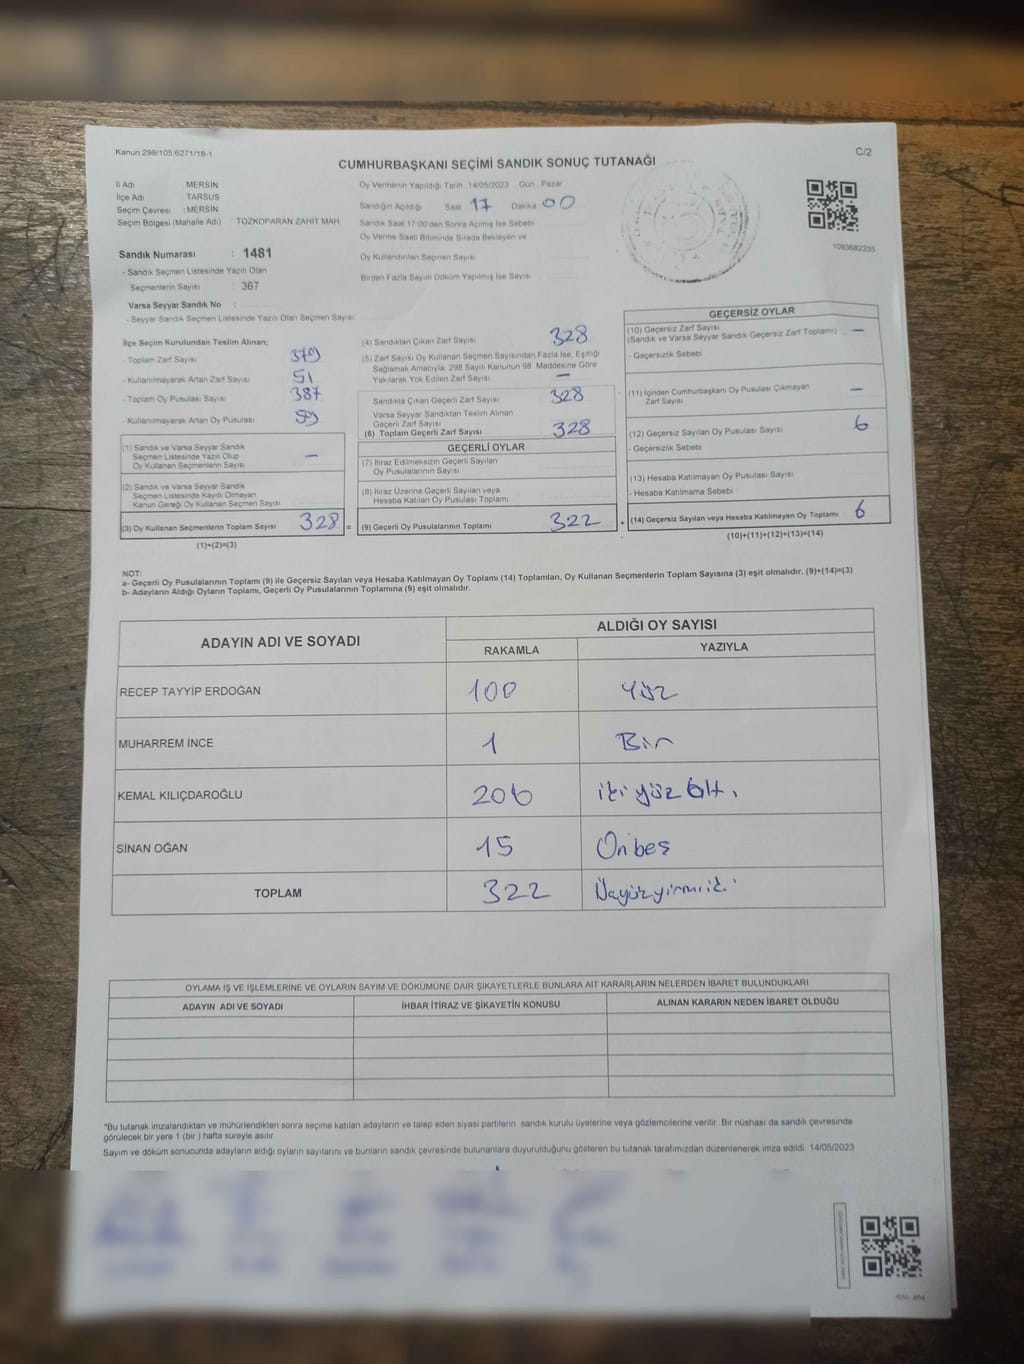 Kanun:298/105;6271/18-1
C/2
CUMHURBAŞKANI SEÇİMİ SANDIK SONUÇ TUTANAĞI
İl Adı : MERSİN
İlçe Adı : TARSUS
Seçim Çevresi : MERSİN
Seçim Bölgesi (Mahalle Adı) : TOZKOPARAN ZAHİT MAH.
Oy Vermenin Yapıldığı Tarih 14/05/2023 Gün : Pazar
Sandığın Açıldığı Saat 17 Dakika 00
Sandık Saat 17:00'den Sonra Açılmış İse Sebebi
Oy Verme Saati Bitiminde Sırada Bekleyen ve
Oy Kullandırılan Seçmen Sayısı
Birden Fazla Sayım Döküm Yapılmış İse Sayısı
1093682335
Sandık Numarası : 1481
- Sandık Seçmen Listesinde Yazılı Olan
Seçmenlerin Sayısı : 367
Varsa Seyyar Sandık No :
- Seyyar Sandık Seçmen Listesinde Yazılı Olan Seçmen Sayısı
İlçe Seçim Kurulundan Teslim Alınan;
- Toplam Zarf Sayısı 379
- Kullanılmayarak Artan Zarf Sayısı 51
- Toplam Oy Pusulası Sayısı 387
- Kullanılmayarak Artan Oy Pusulası 59
(1) Sandık ve Varsa Seyyar Sandık
Seçmen Listesinde Yazılı Olup
Oy Kullanan Seçmenlerin Sayısı —
(2) Sandık ve Varsa Seyyar Sandık
Seçmen Listesinde Kayıtlı Olmayan
Kanun Gereği Oy Kullanan Seçmen Sayısı
(3) Oy Kullanan Seçmenlerin Toplam Sayısı 328 =
(1)+(2)=(3)
(4) Sandıktan Çıkan Zarf Sayısı 328
(5) Zarf Sayısı Oy Kullanan Seçmen Sayısından Fazla İse, Eşitliği
Sağlamak Amacıyla, 298 Sayılı Kanunun 98. Maddesine Göre
Yakılarak Yok Edilen Zarf Sayısı —
Sandıkta Çıkan Geçerli Zarf Sayısı 328
Varsa Seyyar Sandıktan Teslim Alınan
Geçerli Zarf Sayısı
(6) Toplam Geçerli Zarf Sayısı 328
GEÇERLİ OYLAR
(7) İtiraz Edilmeksizin Geçerli Sayılan
Oy Pusulalarının Sayısı
(8) İtiraz Üzerine Geçerli Sayılan veya
Hesaba Katılan Oy Pusulası Toplamı
(9) Geçerli Oy Pusulalarının Toplamı 322 +
GEÇERSİZ OYLAR
(10) Geçersiz Zarf Sayısı
(Sandık ve Varsa Seyyar Sandık Geçersiz Zarf Toplamı) —
- Geçersizlik Sebebi
(11) İçinden Cumhurbaşkanı Oy Pusulası Çıkmayan
Zarf Sayısı —
(12) Geçersiz Sayılan Oy Pusulası Sayısı 6
- Geçersizlik Sebebi
(13) Hesaba Katılmayan Oy Pusulası Sayısı
- Hesaba Katılmama Sebebi
(14) Geçersiz Sayılan veya Hesaba Katılmayan Oy Toplamı 6
(10)+(11)+(12)+(13)=(14)
NOT:
a- Geçerli Oy Pusulalarının Toplamı (9) ile Geçersiz Sayılan veya Hesaba Katılmayan Oy Toplamı (14) Toplamları, Oy Kullanan Seçmenlerin Toplam Sayısına (3) eşit olmalıdır. (9)+(14)=(3)
b- Adayların Aldığı Oyların Toplamı, Geçerli Oy Pusulalarının Toplamına (9) eşit olmalıdır.
ADAYIN ADI VE SOYADI
ALDIĞI OY SAYISI
RAKAMLA YAZIYLA
RECEP TAYYİP ERDOĞAN 100 Yüz
MUHARREM İNCE 1 Bir
KEMAL KILIÇDAROĞLU 206 iki yüz altı
SİNAN OĞAN 15 Onbeş
TOPLAM 322 Üçyüzyirmiiki
OYLAMA İŞ VE İŞLEMLERİNE VE OYLARIN SAYIM VE DÖKÜMÜNE DAİR ŞİKAYETLERLE BUNLARA AİT KARARLARIN NELERDEN İBARET BULUNDUKLARI
ADAYIN ADI VE SOYADI İHBAR İTİRAZ VE ŞİKAYETİN KONUSU ALINAN KARARIN NEDEN İBARET OLDUĞU
*Bu tutanak imzalandıktan ve mühürlendikten sonra seçime katılan adayların ve talep eden siyasi partilerin sandık kurulu üyelerine veya gözlemcilerine verilir. Bir nüshası da sandık çevresinde
görülecek bir yere 1 (bir ) hafta süreyle asılır.
Sayım ve döküm sonucunda adayların aldığı oyların sayılarını ve bunların sandık çevresinde bulunanlara duyurulduğunu gösteren bu tutanak tarafımızdan düzenlenerek imza edildi. 14/05/2023